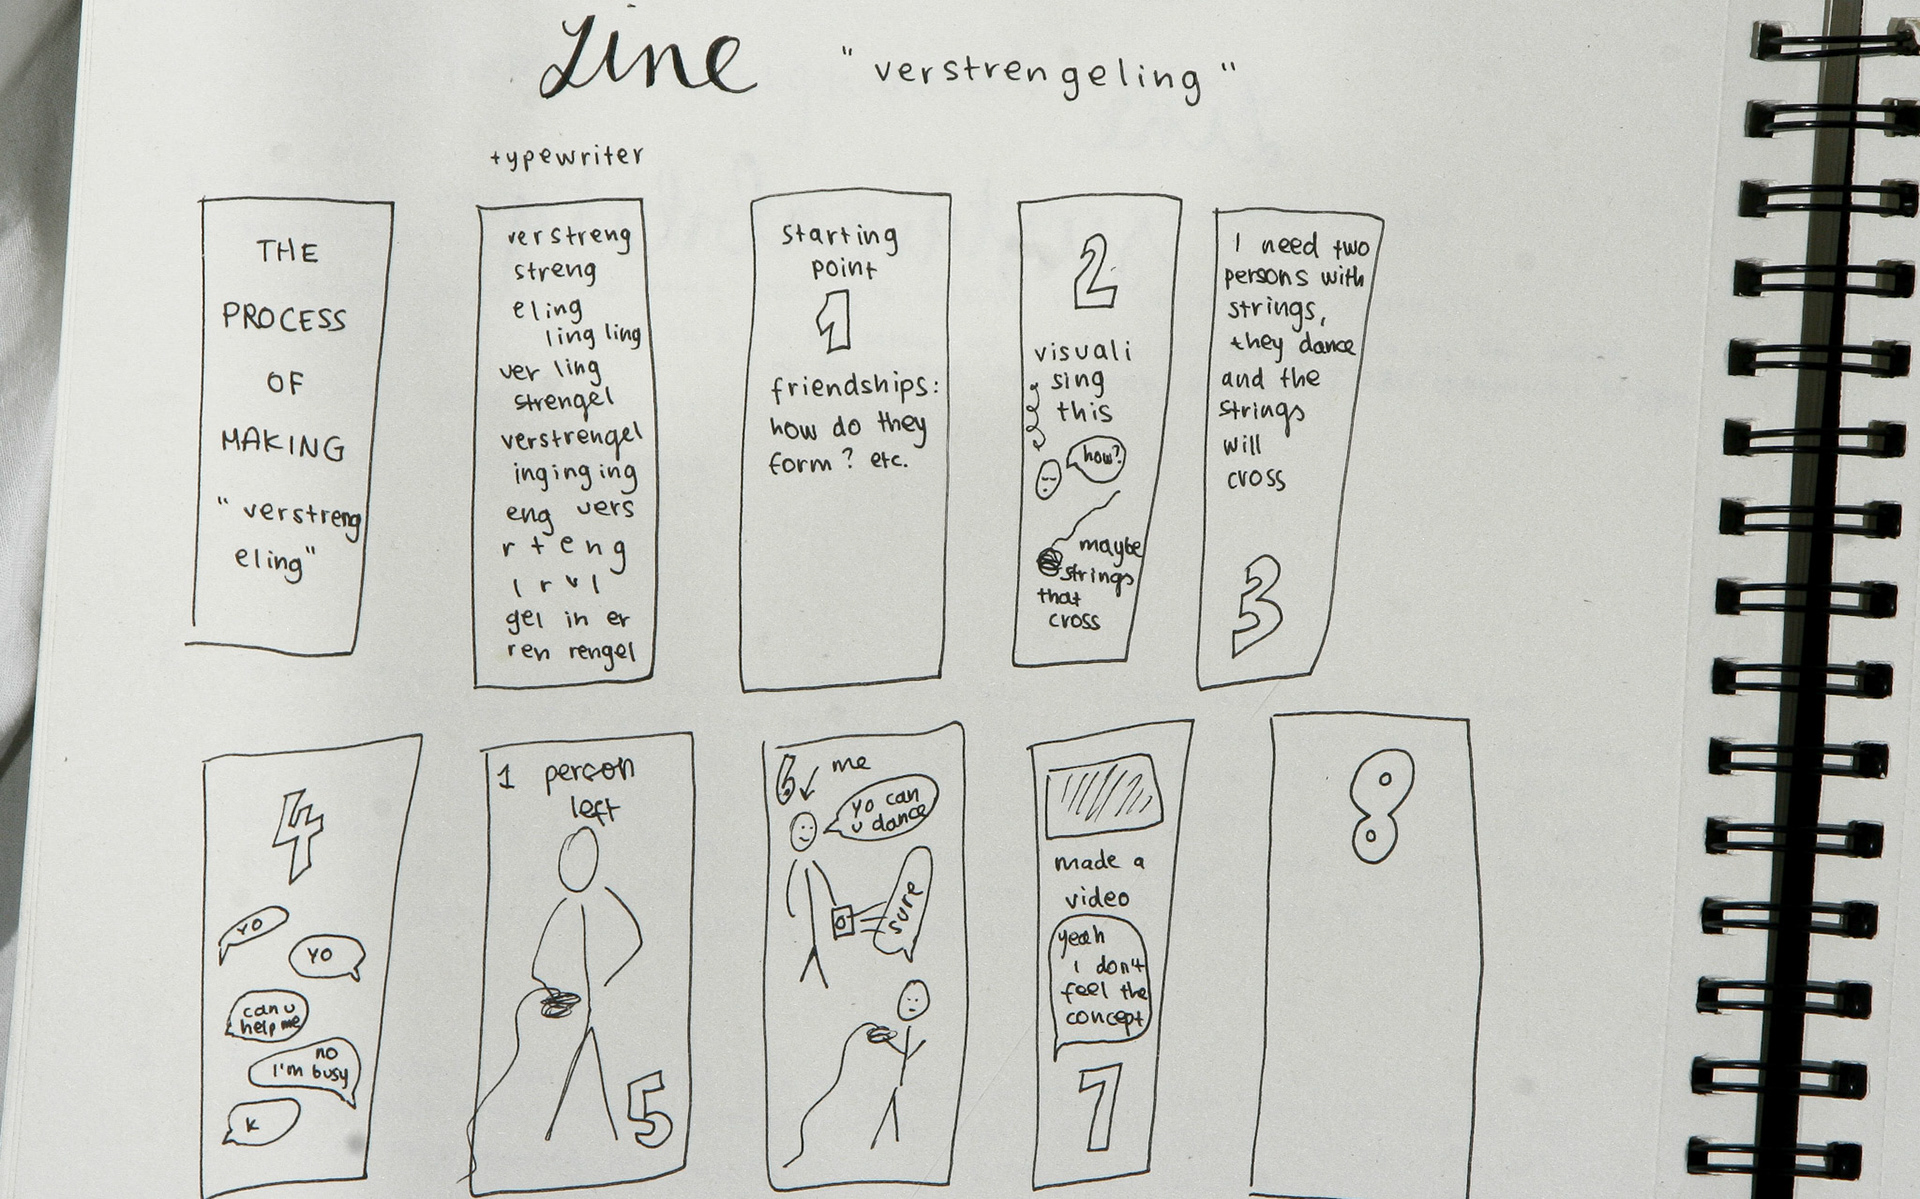 Line "verstrengeling"
typewriter
THE
PROCESS
OF
MAKING
"verstreng
eling"
verstreng
streng
eling
ling ling
ver ling
strengel
verstrengel
inginging
eng vers
r t e n g
l r v l
gel in er
ren rengel
starting
point
1
friendships:
how do they
form? etc.
2
visuali
sing
this
how?
maybe
strings
that
cross
I need two
persons with
strings,
they dance
and the
strings
will
cross
3
4
yo
yo
can u
help me
no
I'm busy
k
1 person
left
5
6 me
yo can
u dance
sure
made a
video
yeah
I don't
feel the
concept
7
8